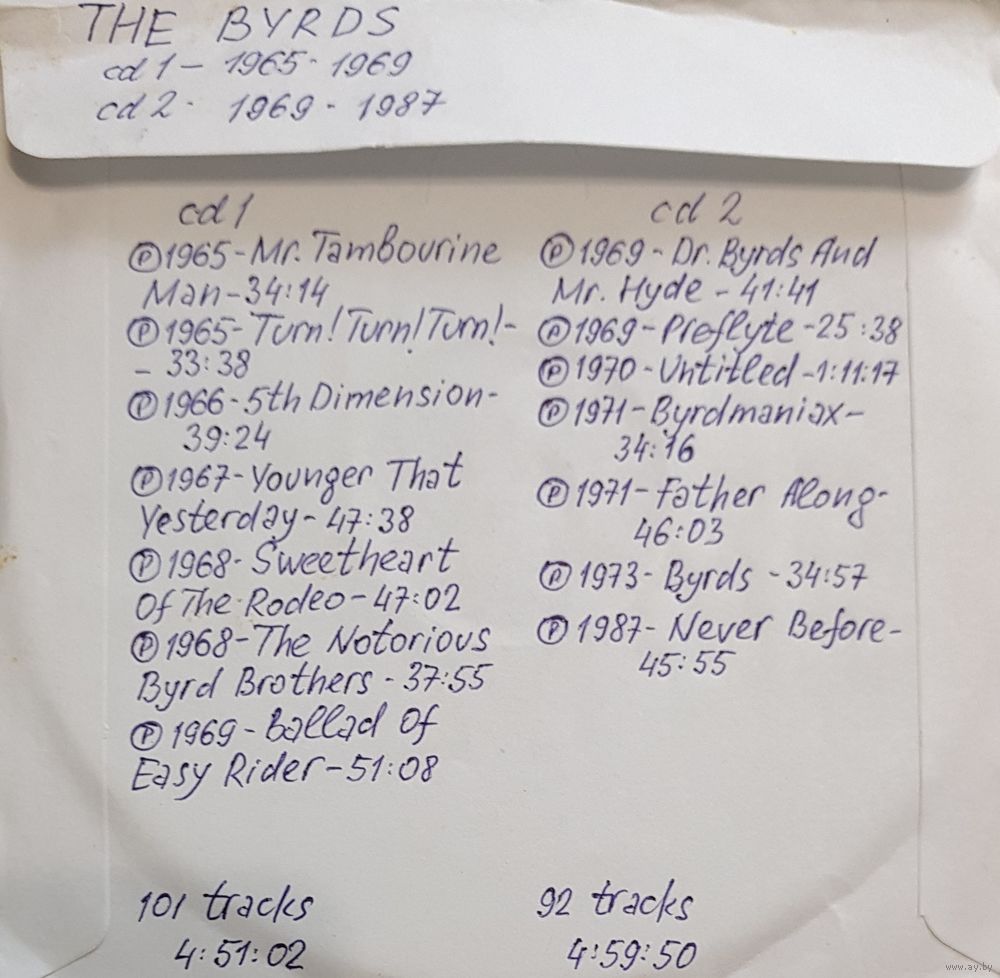 THE BYRDS
cd 1 – 1965 - 1969
cd 2 - 1969 - 1987
cd 1
Ⓟ1965-Mr. Tambourine
Man-34:14
Ⓟ1965-Turn!Turn!Turn!-
- 33:38
Ⓟ1966-5th Dimension-
39:24
Ⓟ1967-Younger That
Yesterday-47:38
Ⓟ1968-Sweetheart
Of The Rodeo-47:02
Ⓟ1968-The Notorious
Byrd Brothers - 37:55
Ⓟ1969-Ballad Of
Easy Rider-51:08
101 tracks
4:51:02
cd 2
Ⓟ1969-Dr. Byrds And
Mr. Hyde - 41:41
Ⓟ1969-Preflyte-25:38
Ⓟ1970-Untitled-1:11:17
Ⓟ1971-Byrdmaniax-
34:16
Ⓟ1971-Father Along-
46:03
Ⓟ1973-Byrds -34:57
Ⓟ1987-Never Before-
45:55
92 tracks
4:59:50
www.ay.by